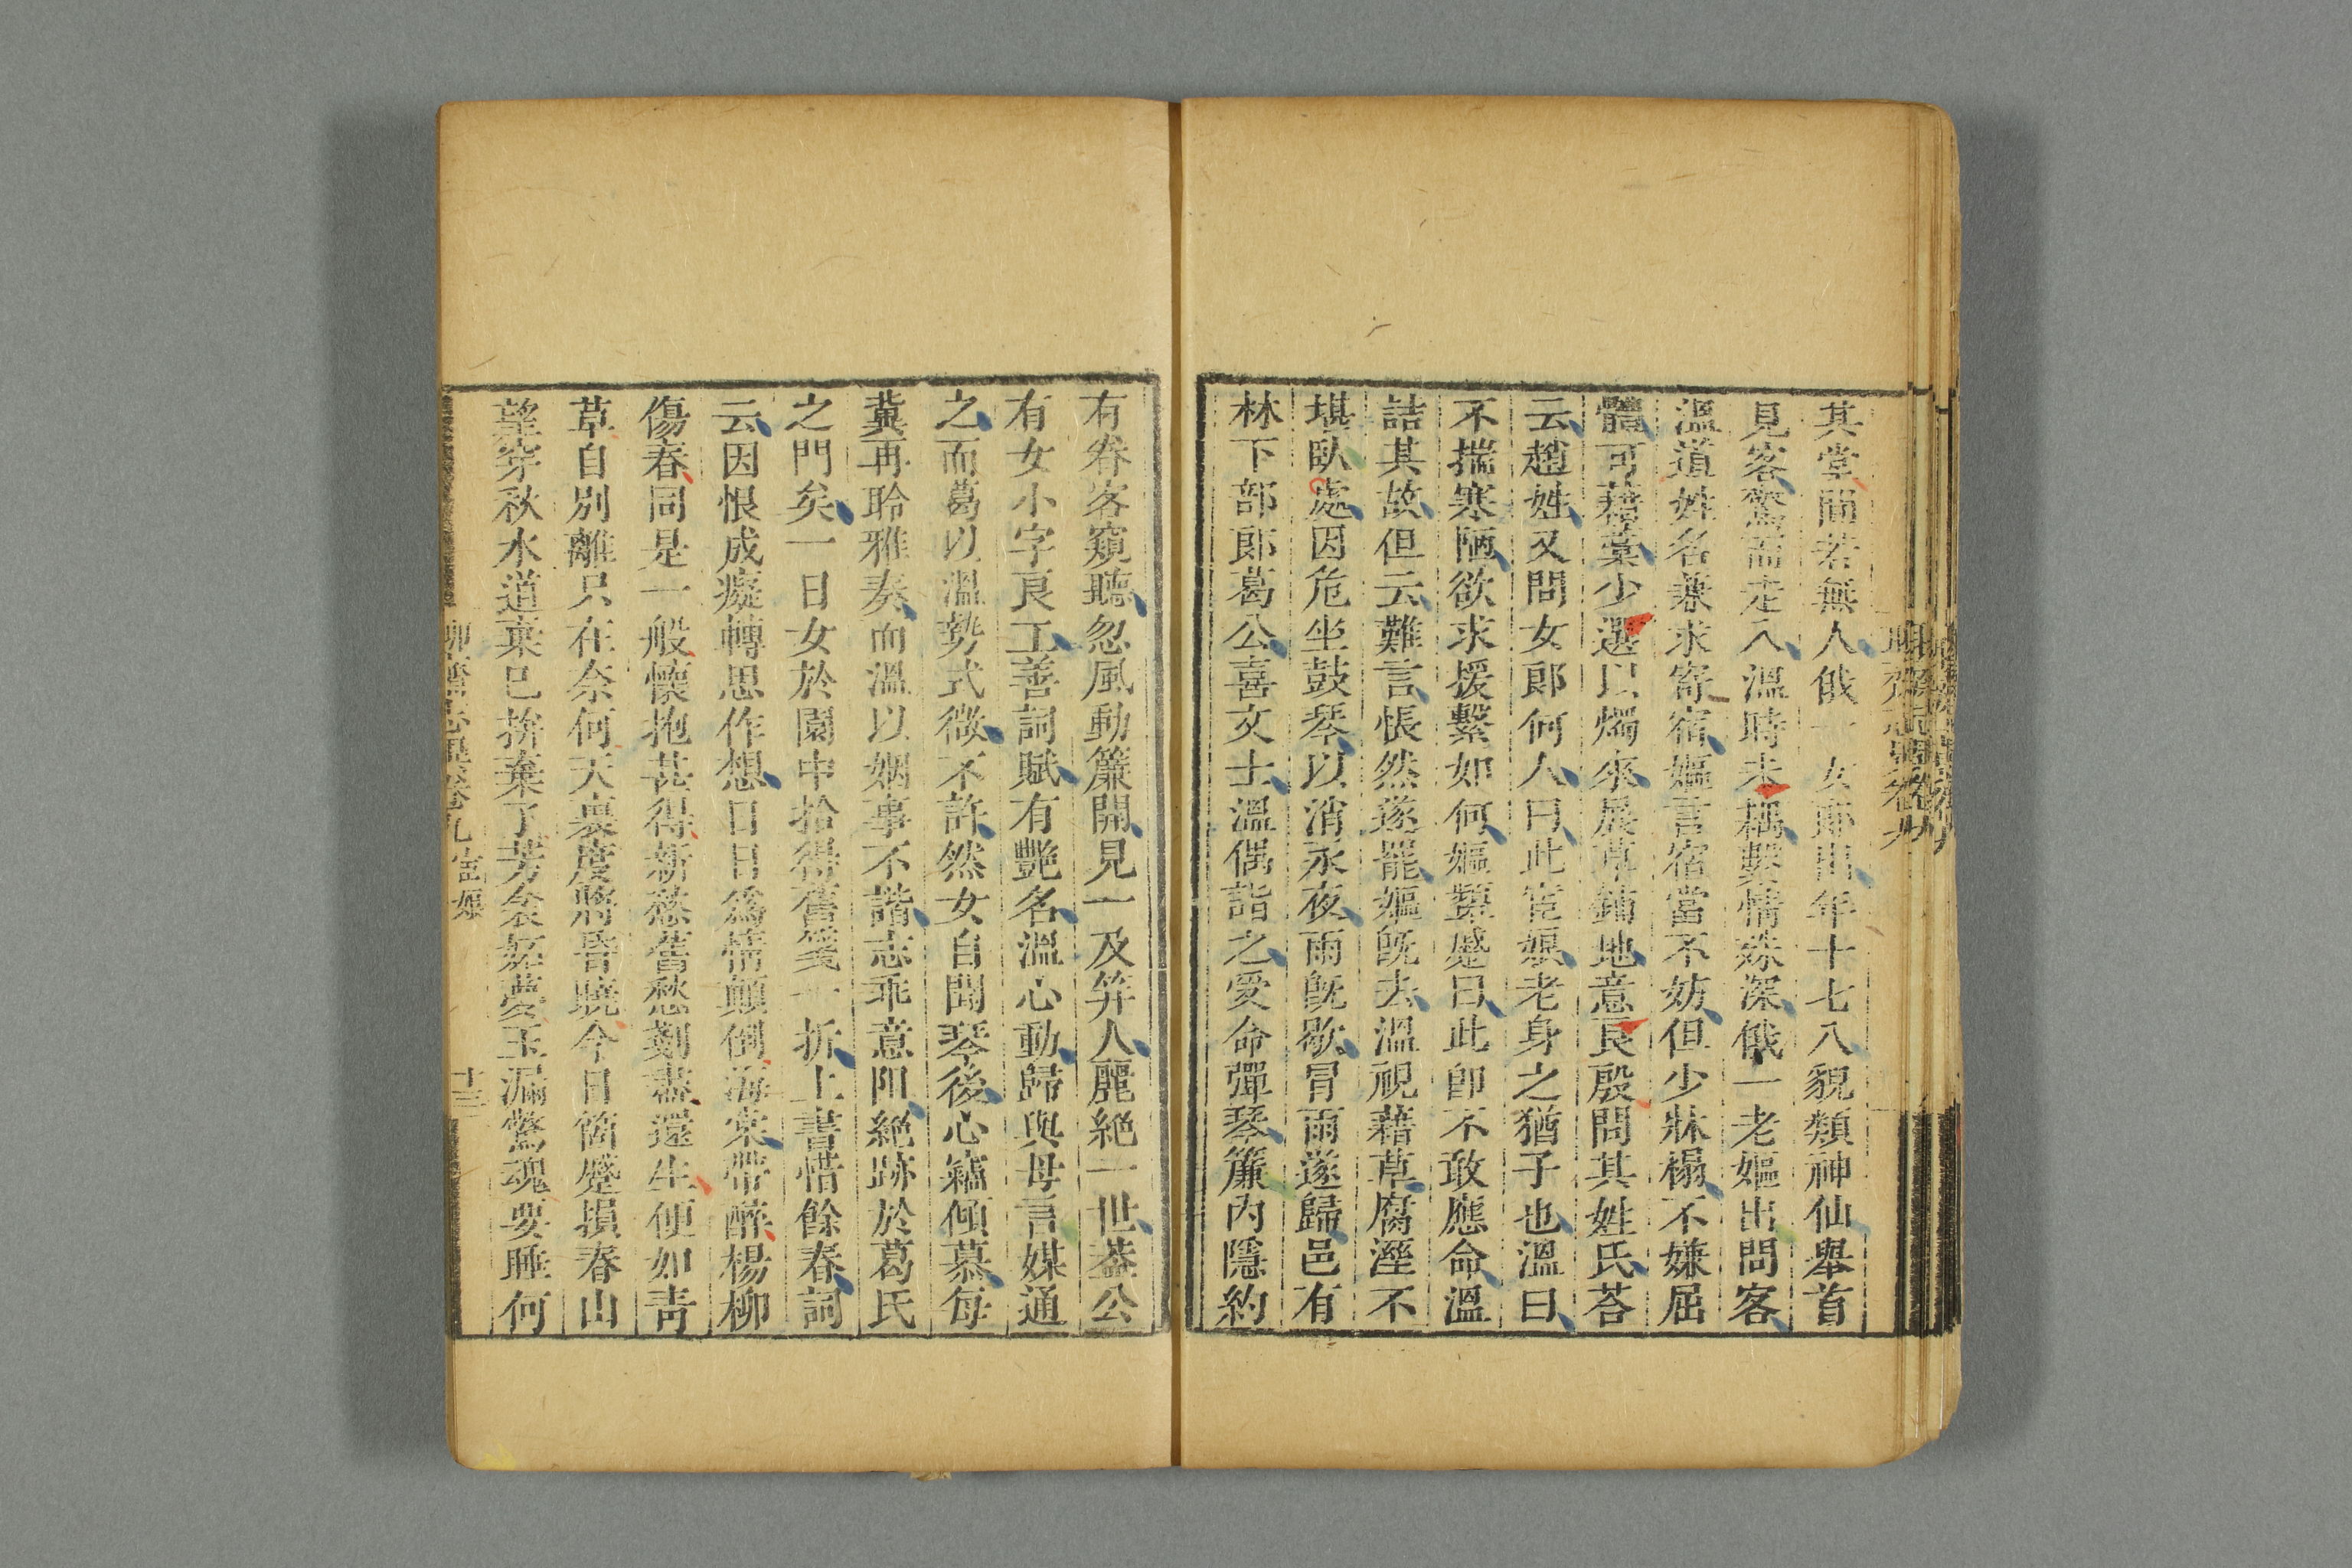 其堂闃若無人俄一女郎出年十七八貌類神仙舉首
見客驚而走入溫時未耦繫情殊深俄一老嫗出問客
溫道姓名兼求寄宿嫗言宿當不妨但少牀榻不嫌屈
體可藉藁少選以燭來展草鋪地意良殷問其姓氏荅
云趙姓又問女郎何人曰此宦娘老身之猶子也溫曰
不揣寒陋欲求援繫如何嫗顰蹙曰此卽不敢應命溫
詰其故但云難言悵然遂罷嫗旣去溫視藉草腐溼不
堪臥處因危坐鼓琴以消永夜雨旣歇冐雨遂歸邑有
林下部郎葛公喜文士溫偶詣之愛命彈琴簾內隱約
有眷客窺聽忽風動簾開見一及笄人麗絕一世葢公
有女小字良工善詞賦有艷名溫心動歸與母言媒通
之而葛以溫勢式微不許然女自聞琴後心竊傾慕每
冀再聆雅奏而溫以姻事不諧志乖意阻絕跡於葛氏
之門矣一日女於園中拾得舊箋一折上書惜餘春詞
云因恨成癡轉思作想日日爲情顛倒海棠帶醉楊柳
傷春同是一般懷抱甚得新愁舊愁剗盡還生便如靑
草自別離只在奈何天裏度將昏曉今日箇蹙損春山
望穿秋水道棄已拚棄了芳衾妬夢玉漏驚魂要睡何
聊齋志異卷九 宦娘 十三